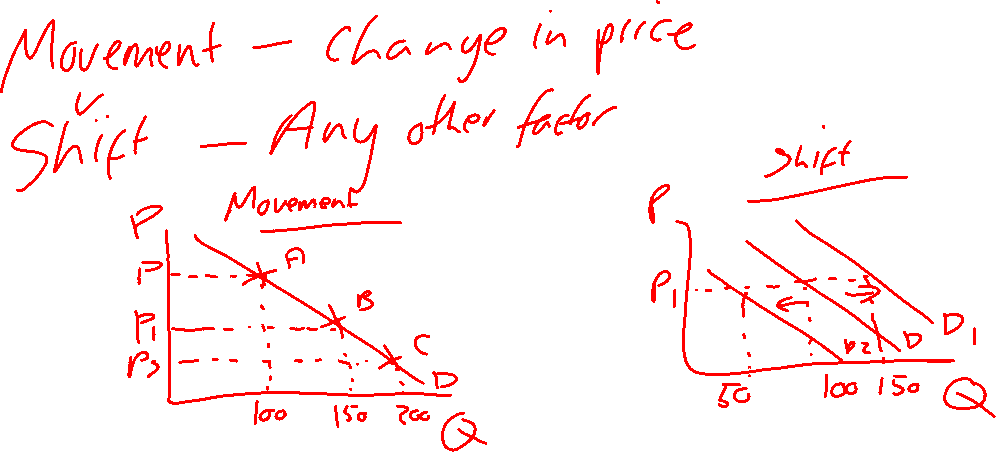 Movement – Change in price
Shift – Any other factor
Movement
Shift
P
P
A
P1
B
P3
C
D
100 150 200
Q
P
P1
D2 D D1
50 100 150
Q